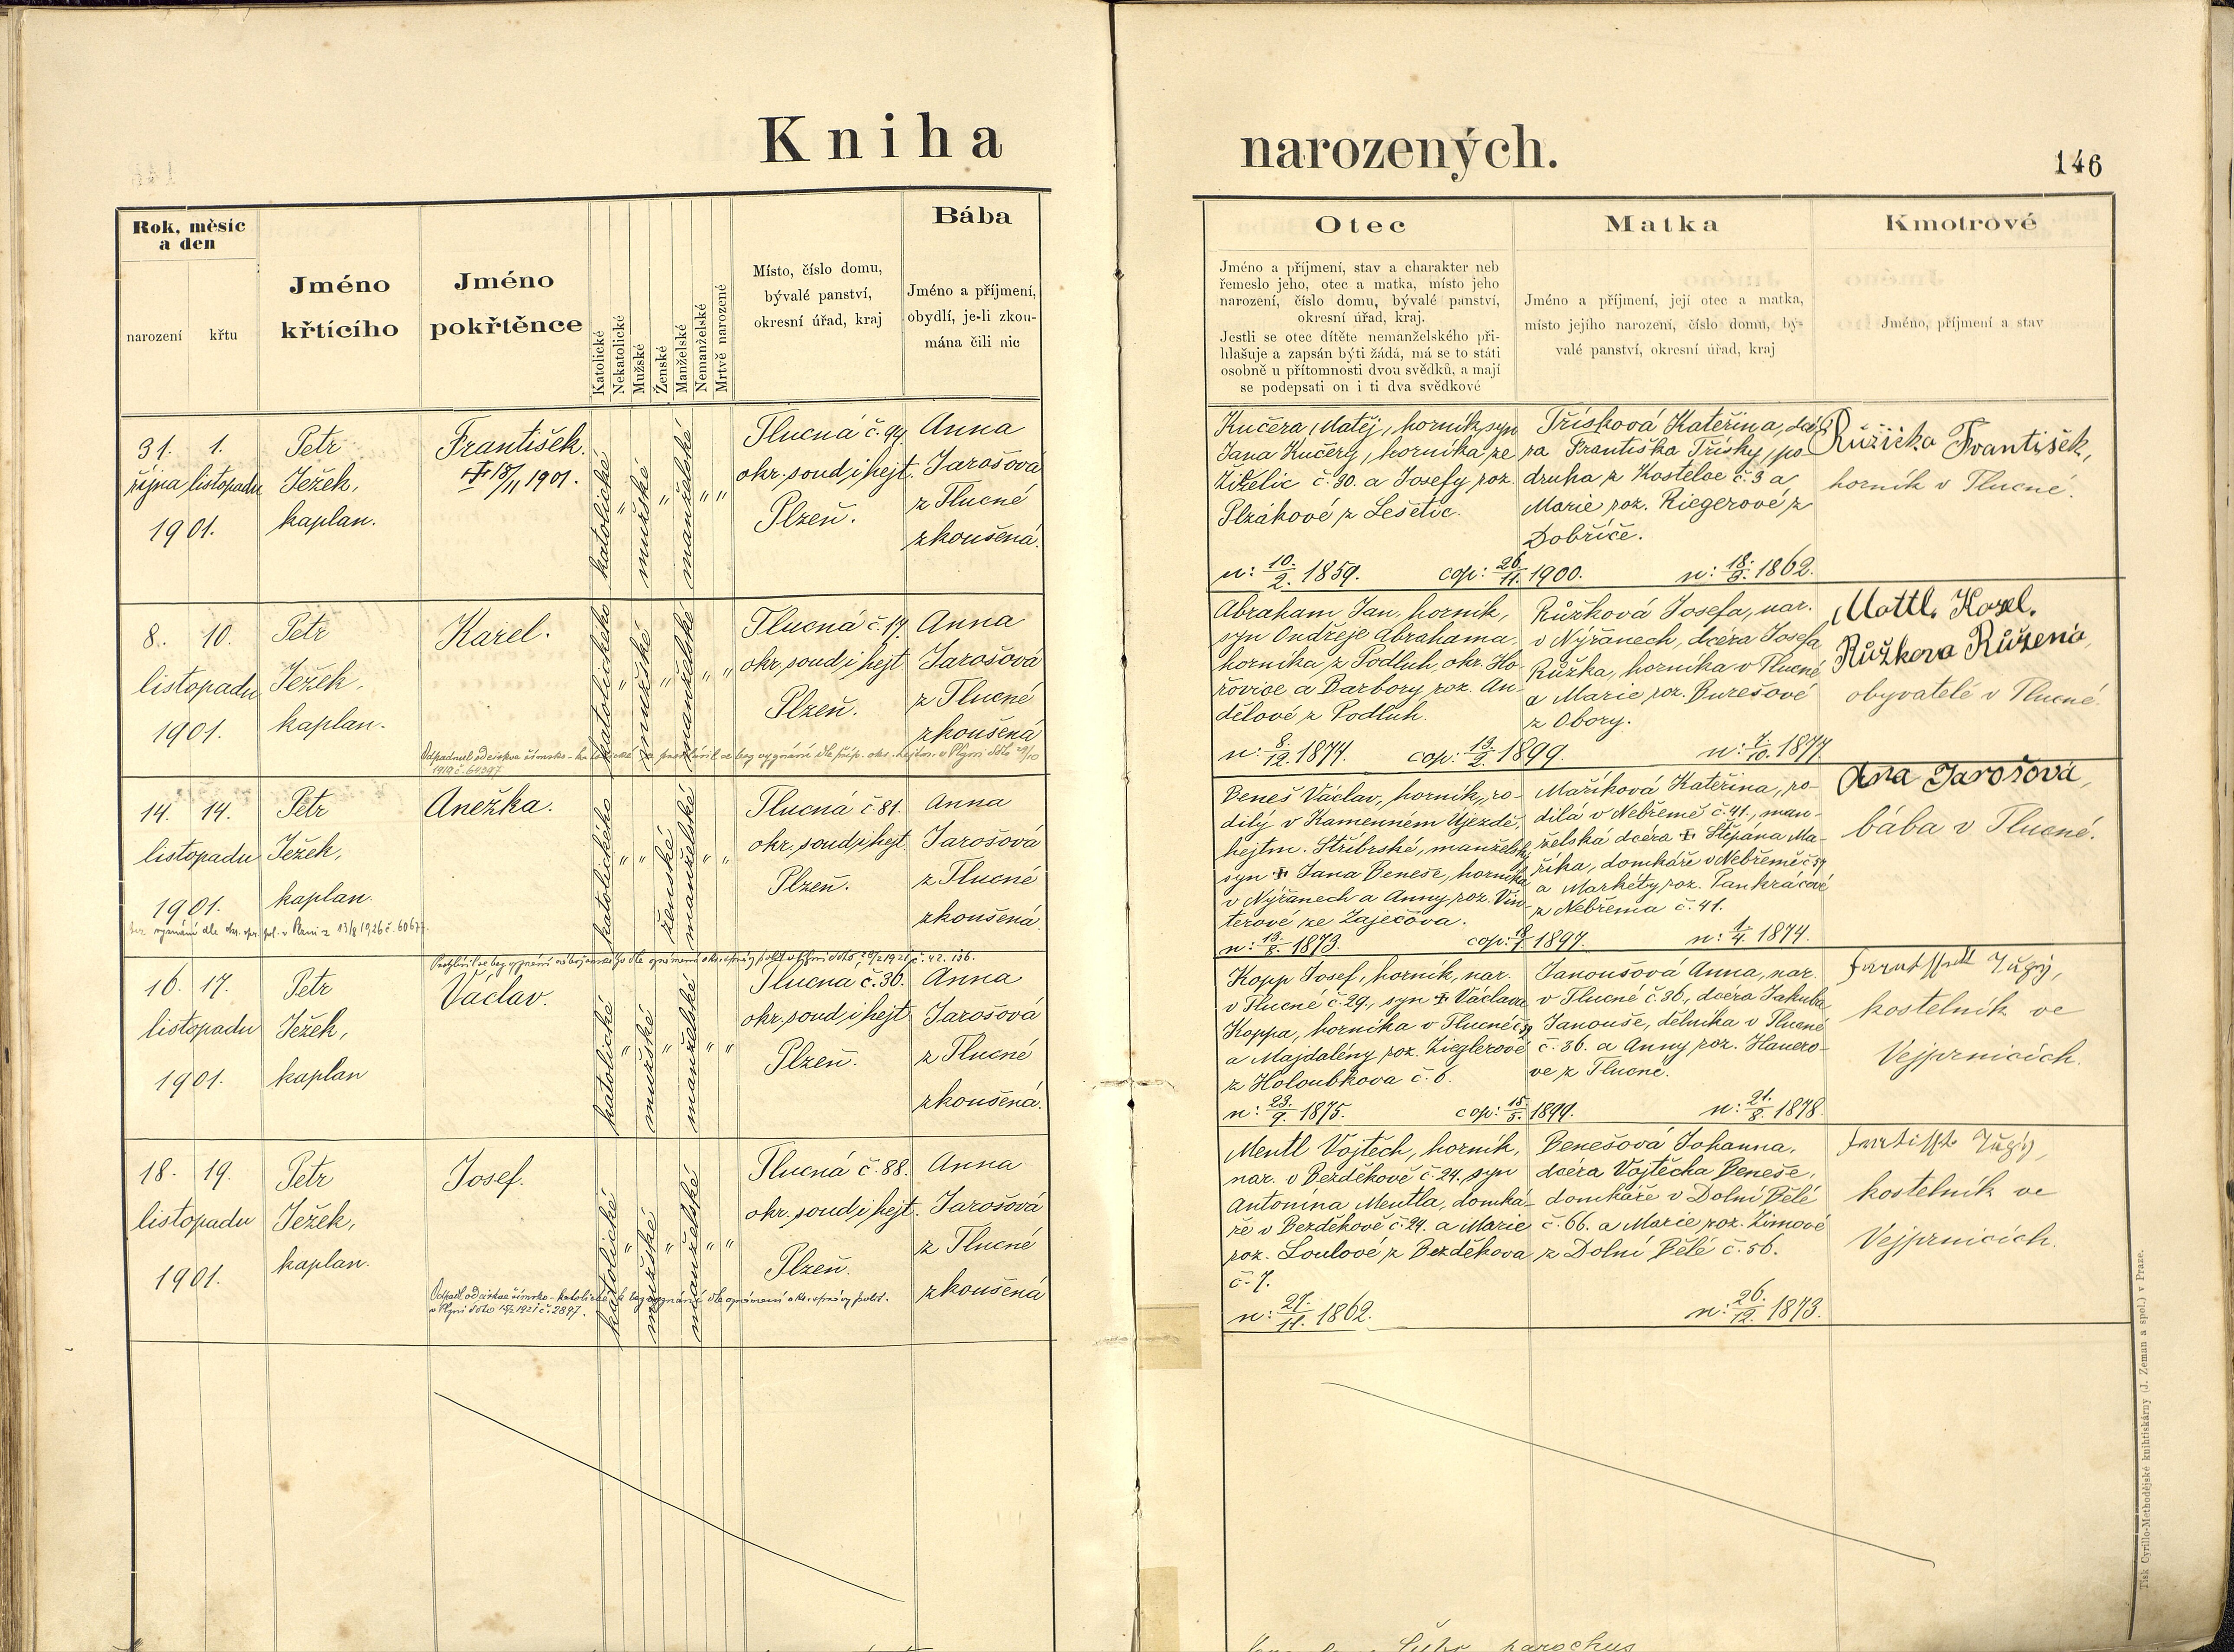 Kniha
narozených.
146
Rok, měsíc
a den
narození
křtu
Jméno
křtícího
Jméno
pokřtěnce
Katolické
Nekatolické
Mužské
Ženské
Manželské
Nemanželské
Mrtvě narozené
Místo, číslo domu,
bývalé panství,
okresní úřad, kraj
Bába
Jméno a příjmení,
obydlí, je-li zkou-
mána čili nic
Otec
Jméno a příjmení, stav a charakter neb
řemeslo jeho, otec a matka, místo jeho
narození, číslo domu, bývalé panství,
okresní úřad, kraj.
Jestli se otec dítěte nemanželského při-
hlašuje a zapsán býti žádá, má se to státi
osobně u přítomnosti dvou svědků, a mají
se podepsati on i ti dva svědkové
Matka
Jméno a příjmení, její otec a matka,
místo jejího narození, číslo domu, bý-
valé panství, okresní úřad, kraj
Kmotrové
Jméno, příjmení a stav
31. 1.
října listopadu
1901.
Petr
Ježek,
kaplan.
František.
† 18/11 1901.
katolické
"
mužské
"
manželské
" "
Tlucná č. 94
okr. soud i hejt.
Plzeň.
Anna
Jarošová
z Tlucné
zkoušená.
Kučera Matěj, horník, syn
Jana Kučery, horníka ze
Žiželic č. 30. a Josefy roz.
Plzákové z Lešetic.
n: 10./2. 1859. cop: 26./11. 1900.
Třísková Kateřina, dce-
ra Františka Třísky, po-
druha z Kosteloe č. 3 a
Marie roz. Riegerové z
Dobříče.
n: 18./9. 1862.
Růžička František,
horník v Tlucné.
8. 10.
listopadu
1901.
Petr
Ježek,
kaplan.
Karel.
katolického
"
mužské
"
manželské
" "
Tlucná č. 17.
okr. soud i hejt.
Plzeň.
Anna
Jarošová
z Tlucné
zkoušená
1919 č. 64397
Abraham Jan, horník,
syn Ondřeje Abrahama
horníka z Podluh, okr. Ho-
řovice a Barbory roz. An-
dělové z Podluh.
n: 8./12. 1874. cop: 13./2. 1899.
Růžková Josefa, nar.
v Nýřanech, dcera Josefa
Růžka, horníka v Tlucné
a Marie roz. Burešové
z Obory.
n: 7./10. 1877.
Mottl Karel.
Růžkova Růžena,
obyvatelé v Tlucné.
14. 14.
listopadu
1901.
Petr
Ježek,
kaplan.
Anežka.
katolického
" "
ženské
manželské
" "
Tlucná č. 81.
okr. soud i hejt.
Plzeň.
Anna
Jarošová
z Tlucné
zkoušená
bez vyznání dle okr. spr. pol. v Plzni z 13/8 1926 č. 60677.
Beneš Václav, horník, ro-
dilý v Kamenném Újezdě,
hejtm. Stříbrské, manželský
syn † Jana Beneše, horníka
v Nýřanech a Anny roz. Vin-
terové ze Zaječova.
n: 13./8. 1873. 1897.
Maříková Kateřina, ro-
dilá v Nebřemě č. 41., man-
želská dcera † Štěpána Ma-
říka, domkáře v Nebřemě
a Markéty roz. Pankrácové
z Nebřema č. 41.
n: 1/4. 1874.
Ana Jarošova,
bába v Tlucné.
16. 17.
listopadu
1901.
Petr
Ježek,
kaplan
Václav.
katolické
"
mužské
"
manželské
" "
Tlucná č. 36.
okr. soud i hejt
Plzeň.
Anna
Jarošová
z Tlucné
zkoušená.
Kopp Josef, horník, nar.
v Tlucné č. 29., syn † Václava
Koppa, horníka v Tlucné
a Majdalény roz. Zieglerové
z Holoubkova č. 6.
n: 23./9. 1875. cop: 15./5. 1899.
Janoušová Anna, nar.
v Tlucné č. 36., dcera Jakuba
Janouše, dělníka v Tlucné
č. 36. a Anny roz. Hauero-
vé z Tlucné.
n: 21./8. 1878.
kostelník ve
Vejprnicích.
18. 19.
listopadu
1901.
Petr
Ježek,
kaplan.
Josef.
katolické
"
mužské
"
manželské
" "
Tlucná č. 88.
okr. soud i hejt.
Plzeň.
Anna
Jarošová
z Tlucné
zkoušená
Mentl Vojtěch, horník,
nar. v Bezděkově č. 24. syn
Antonína Mentla, domká-
ře v Bezděkově č. 24. a Marie
roz. Loulové z Bezděkova
č. 7.
n: 27./11. 1862.
Benešová Johanna,
dcera Vojtěcha Beneše,
domkáře v Dolní Bělé
č. 66. a Marie roz. Zimové
z Dolní Bělé č. 56.
n: 26./12. 1873.
kostelník ve
Vejprnicích.
Tisk Cyrillo-Methodějské knihtiskárny (J. Zeman a spol.) v Praze.
parochus